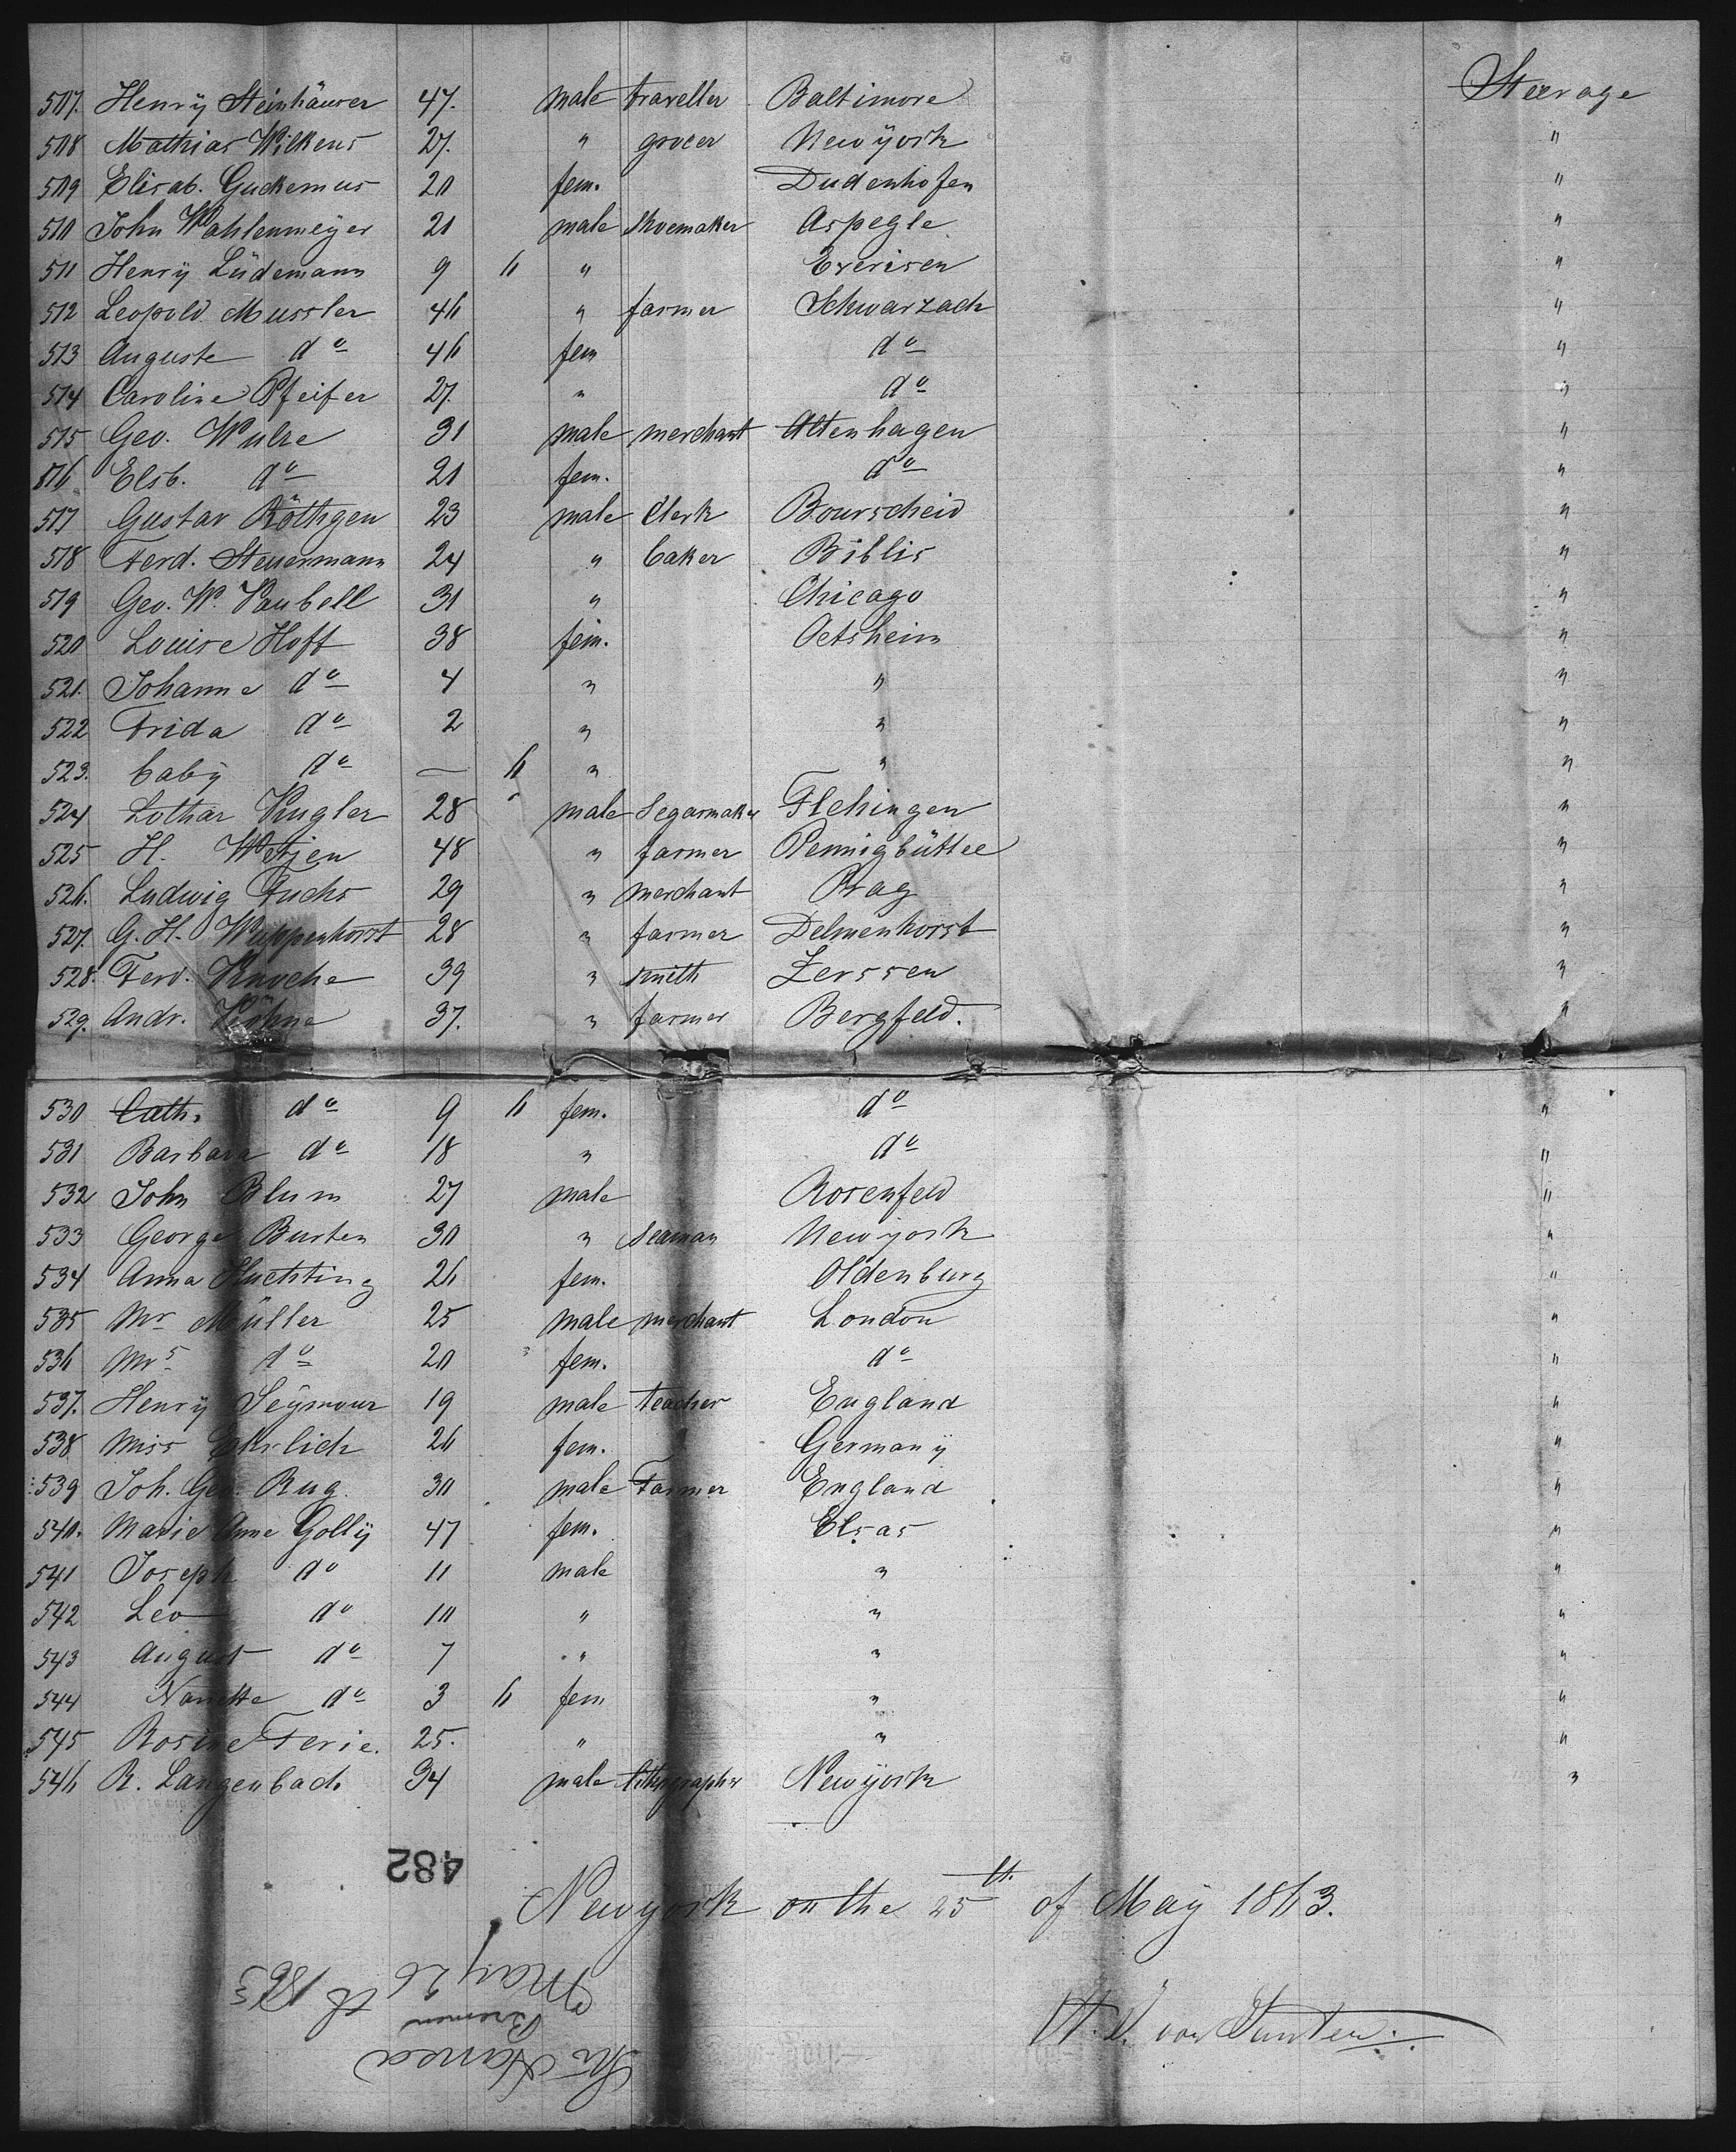 507. Henrÿ Steinhäuser 47. male traveller Baltimore Steerage
508 Mathias Wilkens 27. " grocer Newÿork "
509 Elisab. Guckemus 20 fem. Dudenhofen "
510 John Wahlenmeÿer 21 male shoemaker Aspegle "
511 Henrÿ Lüdemann 9 6 " Exerisen "
512 Leopold Mussler 46 " farmer Schwarzach "
513 Auguste do 46 fem do "
514 Caroline Pfeifer 27. " do "
515 Geo. Wulze 31 male merchant Altenhagen "
516 Elsb. do 21 fem. do "
517 Gustav Röthgen 23 male Clerk Bourscheid "
518 Ferd. Steuermann 24 " baker Biblis "
519 Geo. W. Vaubell 31 " Chicago "
520 Louise Hoft 38 fem. Oetsheim "
521. Johanne do 4 " " "
522 Frida do 2 " " "
523. babÿ do — 6 " " "
524 Lothar Kugler 28 male Segarmaker Flehingen "
525 H. Wetjen 48 " farmer Pennigbüttel "
526. Ludwig Fuchs 29 " merchant Prag "
527. G. H. Wuppenhorst 28 " farmer Delmenhorst "
528. Ferd. Knoche 39 " smith Zerssen "
529. Andr. Höhne 37. " farmer Bergfeld. "
530 Cath. do 9 6 fem. do "
531 Barbara do 18 " do "
532 John Blum 27 male Rosenfeld "
533 George Burten 30 " Seaman Newyork "
534 Anna Huchting 26 fem. Oldenburg "
535 Mr Müller 25 male merchant London "
536 Mrs do 20 fem. do "
537. Henrÿ Seÿmour 19 male teacher England "
538 Miss Ehrlich 26 fem. Germanÿ "
539 Joh. Geo. Rug. 30 male Farmer England "
540. Marie Anne Gollÿ 47 fem. Elsas "
541 Joseph do 11 male " "
542 Leo do 10 " " "
543 August do 7 " " "
544 Nanette do 3 6 fem " "
545 Rosine Ferie. 25. " " "
546 R. Langenbach 34 male lithographer Newÿork "
482
Newyork on the 25th. of Maÿ 1863.
H. J. von Santen.
Shi Hansa
Bremen
May 26th 1863